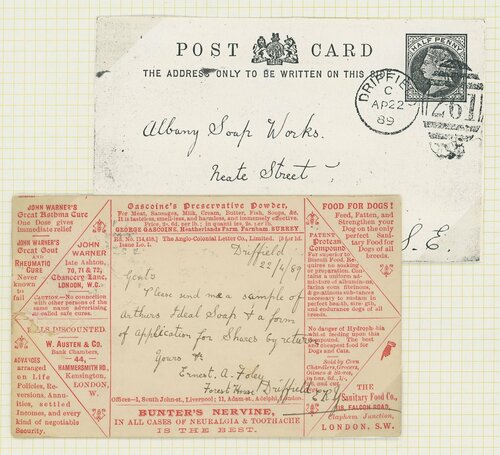 POST CARD
HALF PENNY
THE ADDRESS ONLY TO BE WRITTEN ON THIS
DRIFFIELD
C
AP 22
89
261
Albany Soap Works.
Neate Street
S.E.
JOHN WARNER'S
Great Asthma Cure
One Dose gives
immediate relief
JOHN WARNER'S
Great Gout
and
RHEUMATIC
CURE
Never
known
to
fail
JOHN
WARNER
late Ashton,
70, 71 & 72,
Chancery Lane,
LONDON, W.C.
CAUTION.—No connection
with other persons of the
same name advertising
so-called safe cures.
BILLS DISCOUNTED.
W. AUSTEN & Co.
Bank Chambers,
44
HAMMERSMITH RD.
Kensington,
LONDON,
W.
ADVANCES
arranged
on Life
Policies, Reversions, Annuities,
settled
Incomes, and every
kind of negotiable
Security.
Gascoine's Preservative Powder,
For Meat, Sausages, Milk, Cream, Butter, Fish, Soups, &c.
It is tasteless, smell-less, and harmless, and immensely effective.
GEORGE GASCOINE, Heatherlands Farm, Farnham, SURREY
The Anglo-Colonial Letter Co., Limited.
Issue Lo. 1.
Driffield
22/4/89
Gents
Please send me a sample of
Arthurs Ideal Soap & a form
of application for Shares by return
Yours &c
Ernest. A. Foley
Forest House Driffield
E.R.Y
Offices—1, South John-st., Liverpool; 11, Adam-st., Adelphi, London.
BUNTER'S NERVINE,
IN ALL CASES OF NEURALGIA & TOOTHACHE
IS THE BEST.
FOOD FOR DOGS!
Feed, Fatten, and
Strengthen your
Dog on the only
perfect Sanitary
Food for
Dogs of all
breeds.
PATENT
Protean
Compound
Far superior to
Biscuit Food. Requires
no soaking
or preparation. Contains
a uniform admixture
of
necessary to
sustain in perfect
health, size, weight,
and endurance dogs of all
breeds.
No danger of Hydrophobia
whilst feeding upon this
compound. The best
and cheapest food for
Dogs and Cats.
Sold by Corn
Chandlers, Grocers,
The
Sanitary Food Co.,
FALCON ROAD,
Clapham Junction,
LONDON, S.W.